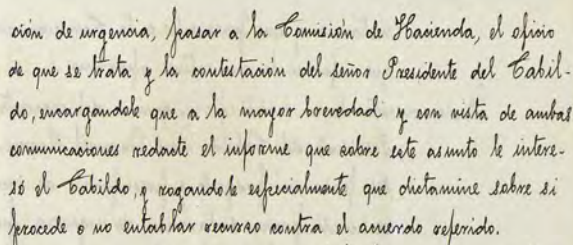 ción de urgencia, pasar a la Comisión de Hacienda, el oficio
de que se trata y la contestación del señor Presidente del Cabil-
do, encargandole que a la mayor brevedad y con vista de ambas
comunicaciones redacte el informe que sobre este asunto le intere-
só el Cabildo, y rogandole especialmente que dictamine sobre si
procede o no entablar recurso contra el acuerdo referido.